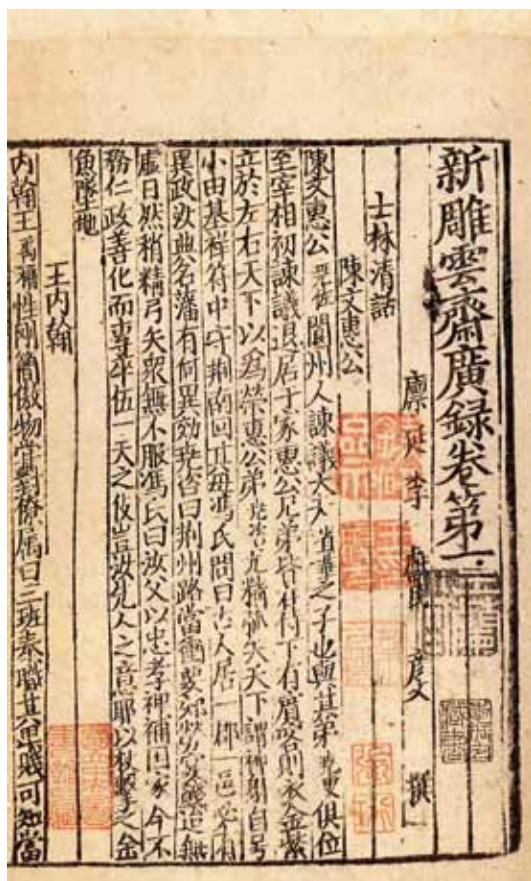 新雕雲齋廣錄卷第一
廩延李獻民彥文撰
士林清話
陳文惠公
陳文惠公堯佐閬州人諫議大夫省華之子也與其弟堯叟俱位
至宰相初諫議退居于家惠公兄弟皆侍何下有賓客則衣金紫
立於左右天下以爲榮惠公弟堯咨尤精弧矢天下謂神射自号
小由基祥符中守荆南回其母馮氏問曰古人居一郡一邑必有
異政汝典名藩有何異効堯咨曰荆州路當衝要郊勞宴餞迨無
虛日然稍精弓矢衆無不服馮氏曰汝父以忠孝裨補囯家今不
務仁政善化而專卒伍一夫之伎豈汝先人之意耶以杖擊之金
魚墜地
王内翰
内翰王禹偁性剛簡傲物嘗對僚属曰三班奉職其卑賤可知當